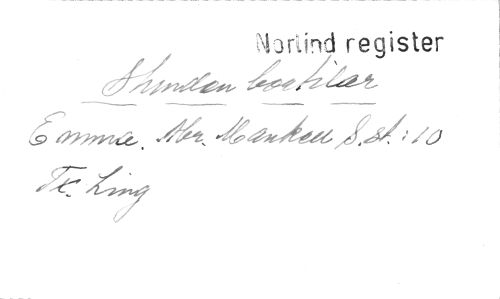 Norlind register
Stundom boktilar
Emma. Abr. Mankell S. st. : 10
Tx. Ling